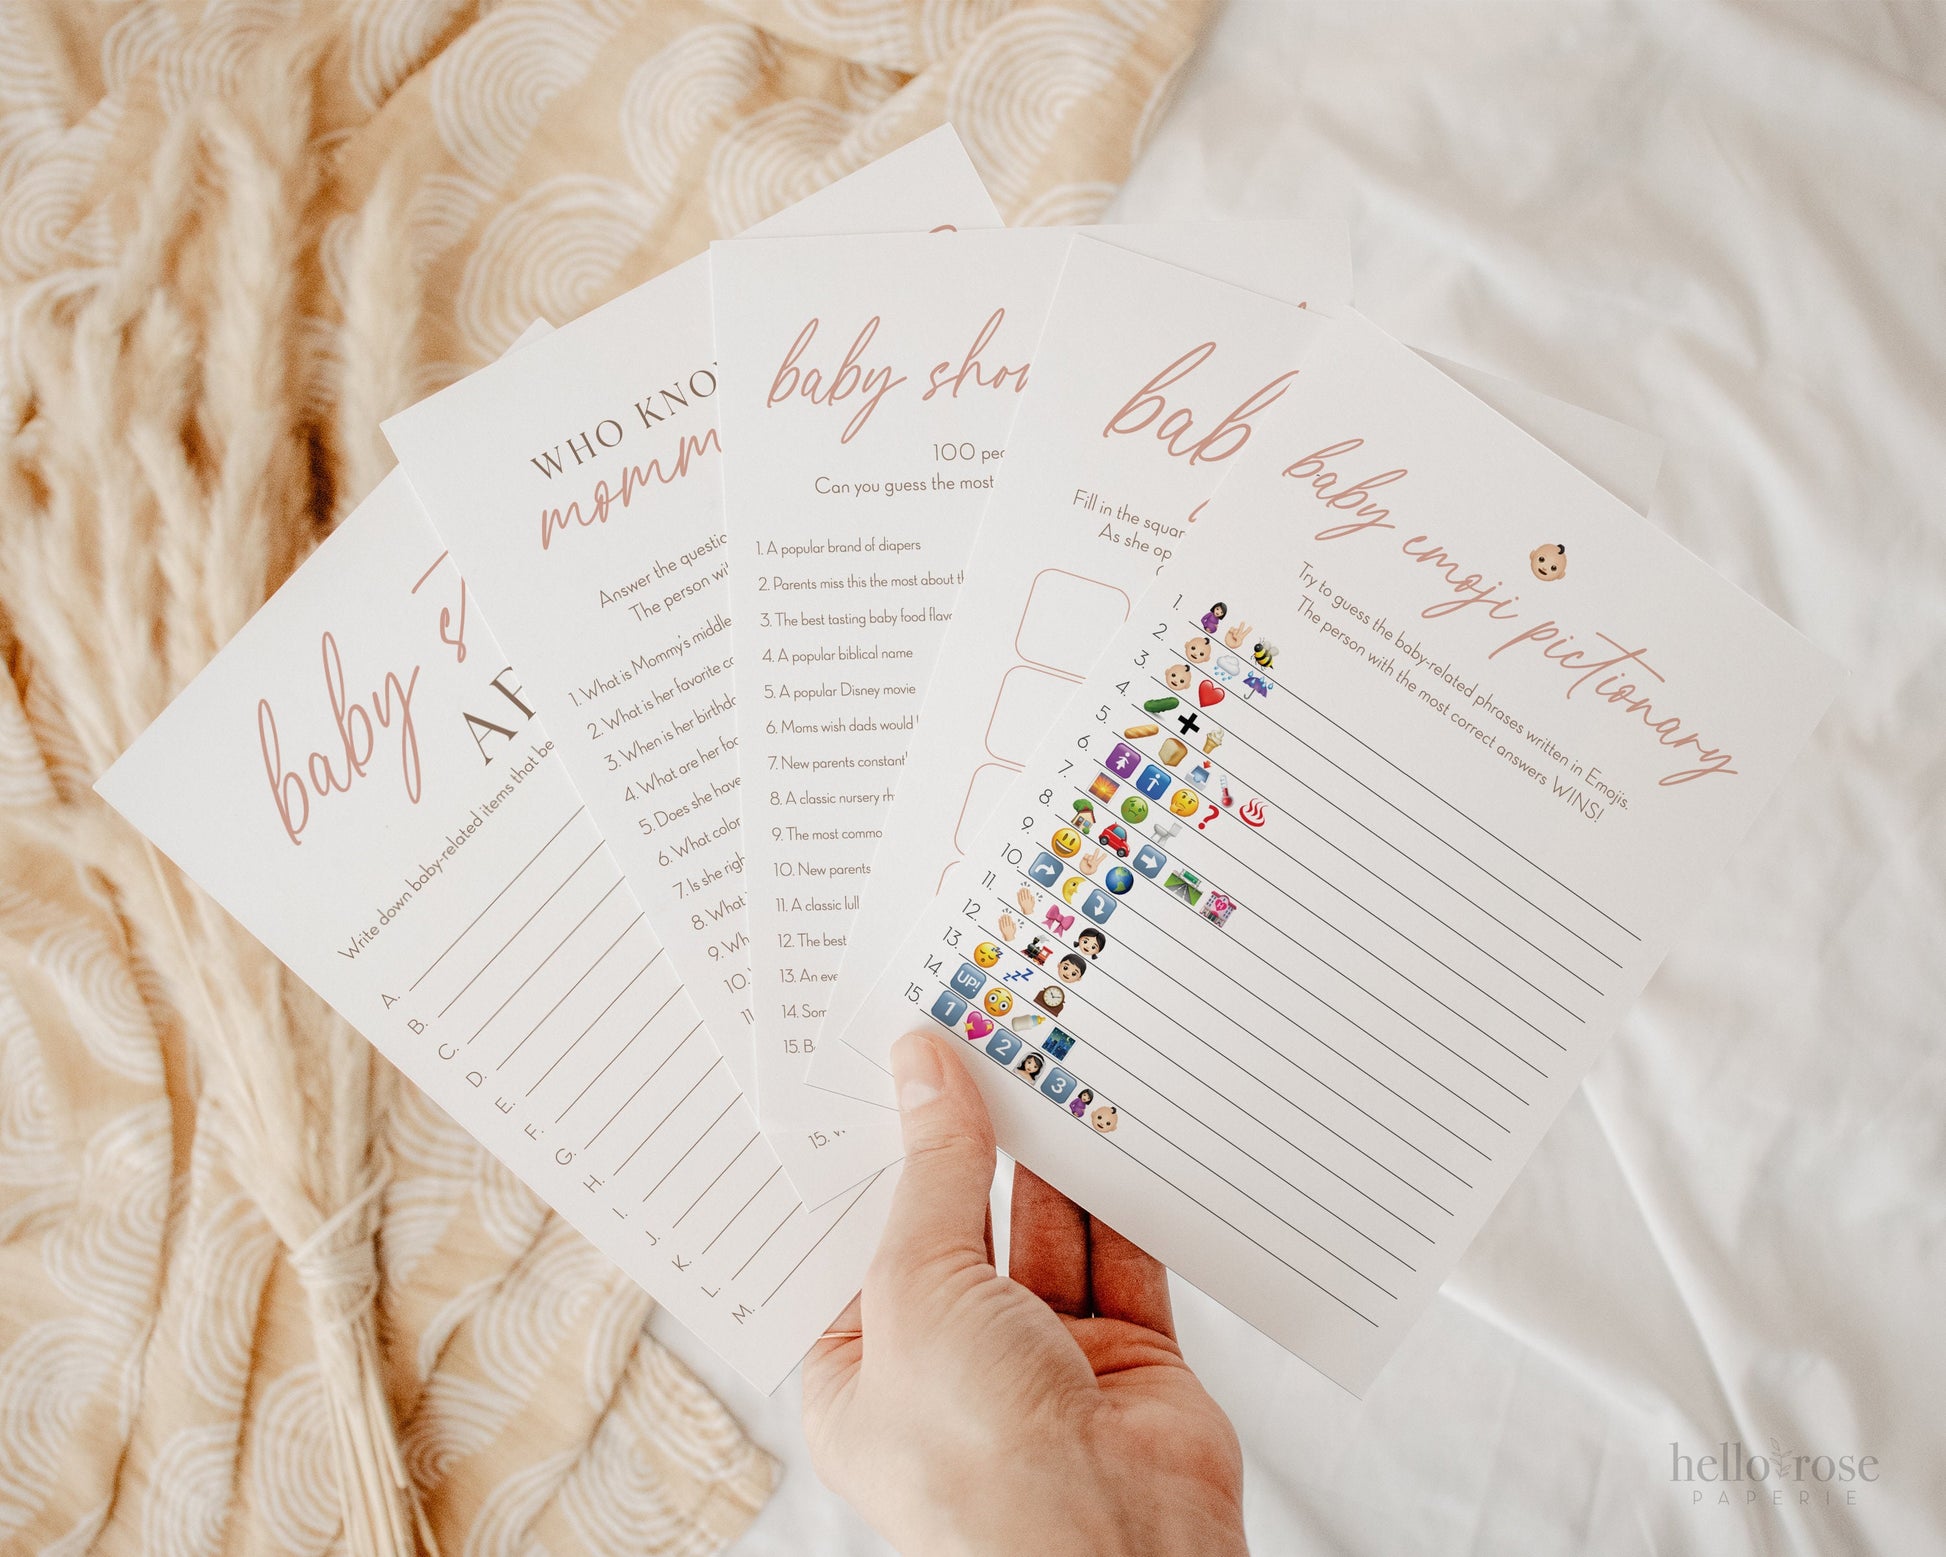 baby
AF
Write down baby-related items that be
A.
B.
C.
D.
E.
F.
G.
H.
I.
J.
K.
L.
M.
WHO KNO
momm
Answer the questio
The person wi
1. What is Mommy's middle
2. What is her favorite co
3. When is her birthda
4. What are her foo
5. Does she have
6. What color
7. Is she righ
8. What
9. Wh
10.
11
15.
baby show
100 peo
Can you guess the most
1. A popular brand of diapers
2. Parents miss this the most about th
3. The best tasting baby food flavo
4. A popular biblical name
5. A popular Disney movie
6. Moms wish dads would
7. New parents constant
8. A classic nursery rh
9. The most commo
10. New parents
11. A classic lull
12. The best
13. An eve
14. Som
15. B
bab
Fill in the squar
As she op
baby emoji pictionary
Try to guess the baby-related phrases written in Emojis.
The person with the most correct answers WINS!
1.
2.
3.
4.
5.
6.
7.
8.
9.
10.
11.
12.
13.
14. UP!
15. 1 2 3
hello rose
PAPERIE